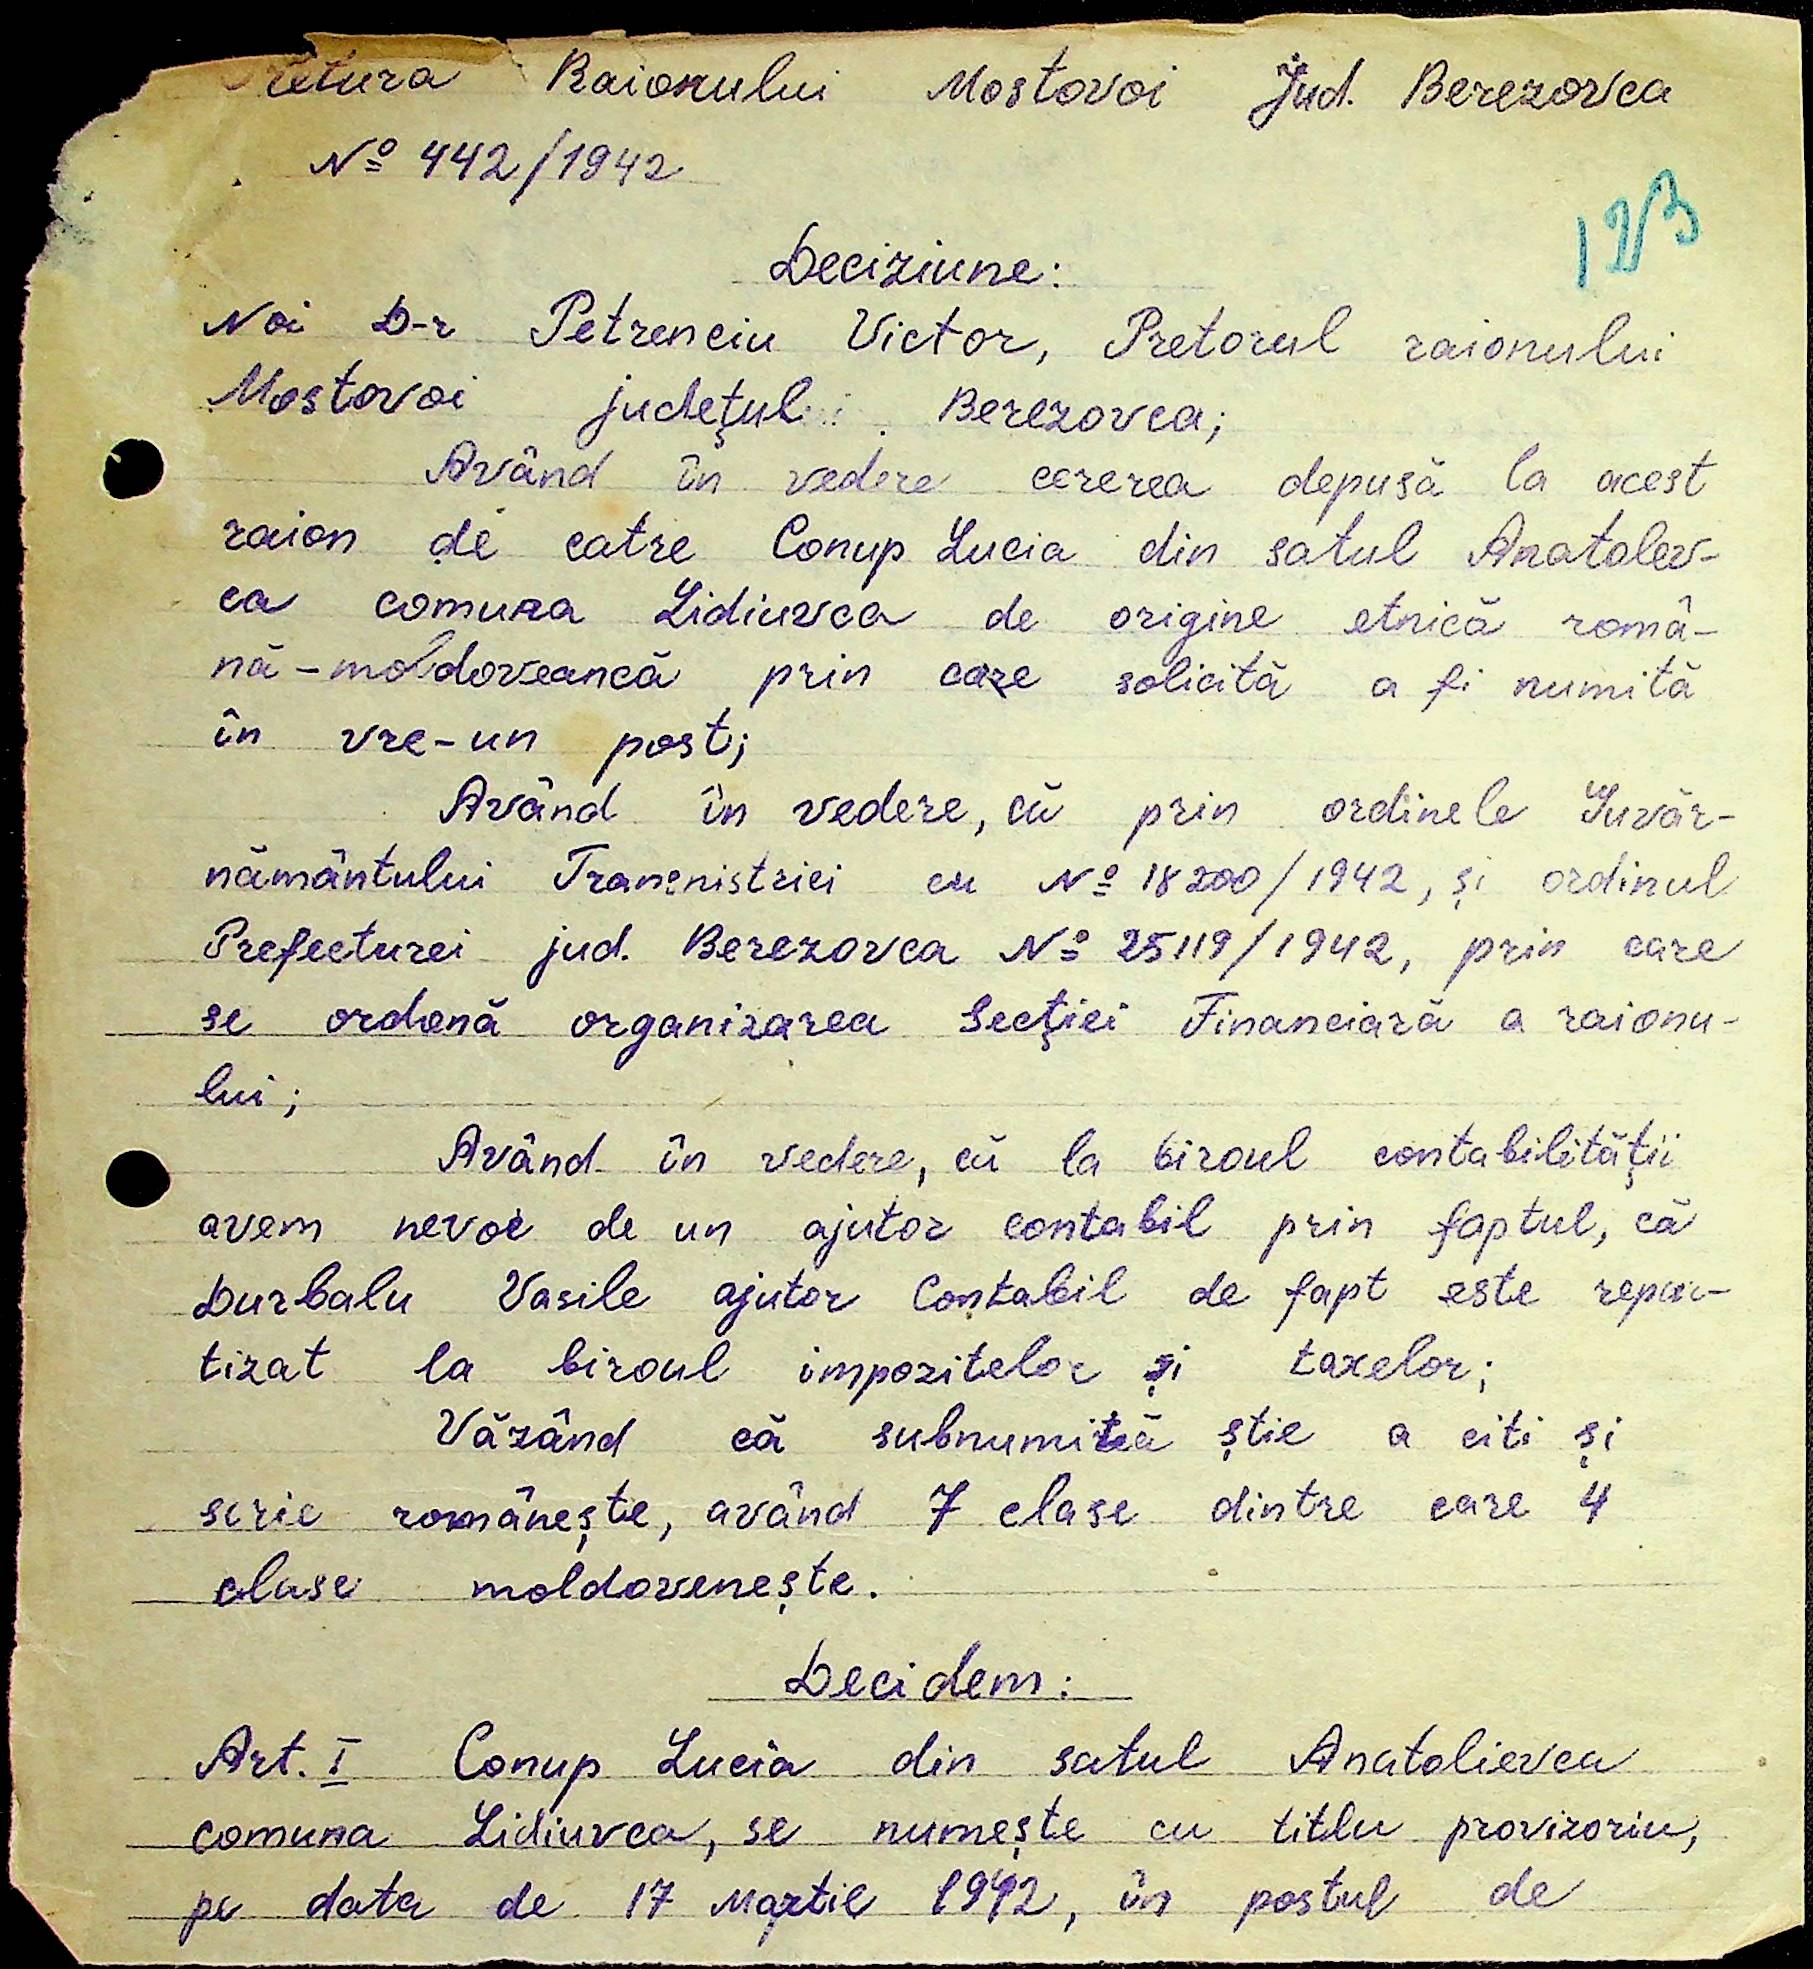 Pretura Raionului Mostovoi Jud. Berezovca
№ 442/1942
123
Deciziune:
Noi D-r Petrenciu Victor, Pretorul raionului
Mostovoi județului Berezovca;
Având în vedere cererea depusă la acest
raion de catre Conup Lucia din satul Anatolev-
ca comuna Lidiuvca de origine etnică româ-
nă-moldoveancă prin care solicită a fi numită
în vre-un post;
Având în vedere, că prin ordinele Guvăr-
nământului Transnistriei cu № 18200/1942, și ordinul
Prefecturei jud. Berezovca № 25119/1942, prin care
se ordonă organizarea Secției Financiară a raionu-
lui;
Având în vedere, că la biroul contabilității
avem nevoe de un ajutor contabil prin faptul, că
Durbalu Vasile ajutor Contabil de fapt este repar-
tizat la biroul impozitelor și taxelor;
Văzând că subnumita știe a citi și
scrie românește, având 7 clase dintre care 4
clase moldovenește.
Decidem:
Art. I Conup Lucia din satul Anatolievca
comuna Lidiuvca, se numește cu titlu provizoriu,
pe data de 17 Martie 1942, în postul de